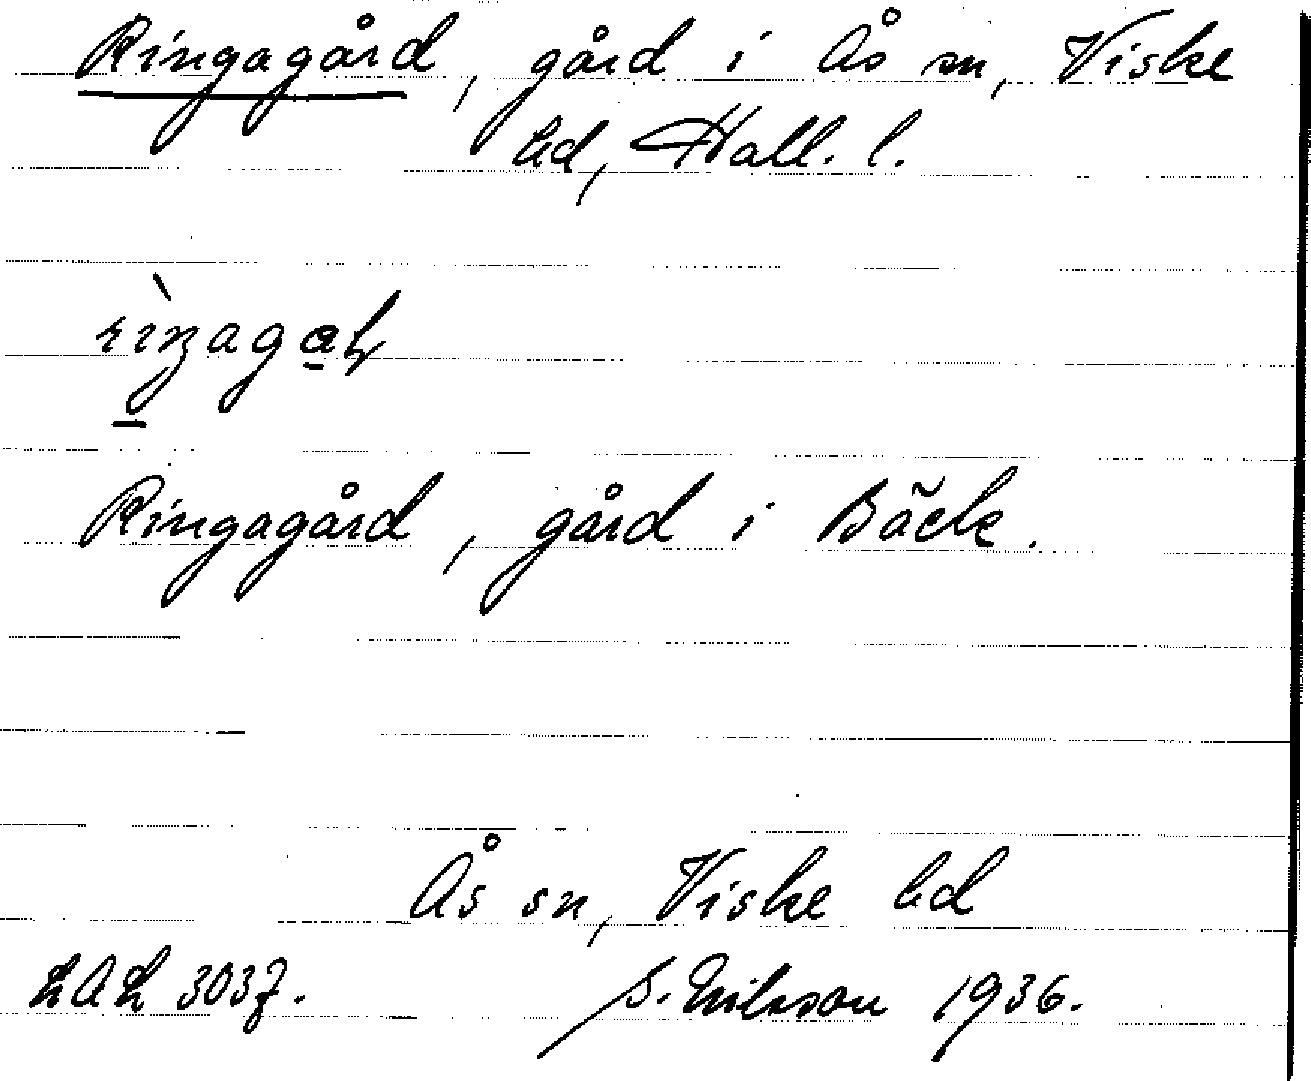 Ringagård, gård i Ås sn, Viske
hd, Hall. l.
Ringagård, gård i Bäck.
Ås sn, Viske hd
LAL 3037.
S. Nilsson 1936.